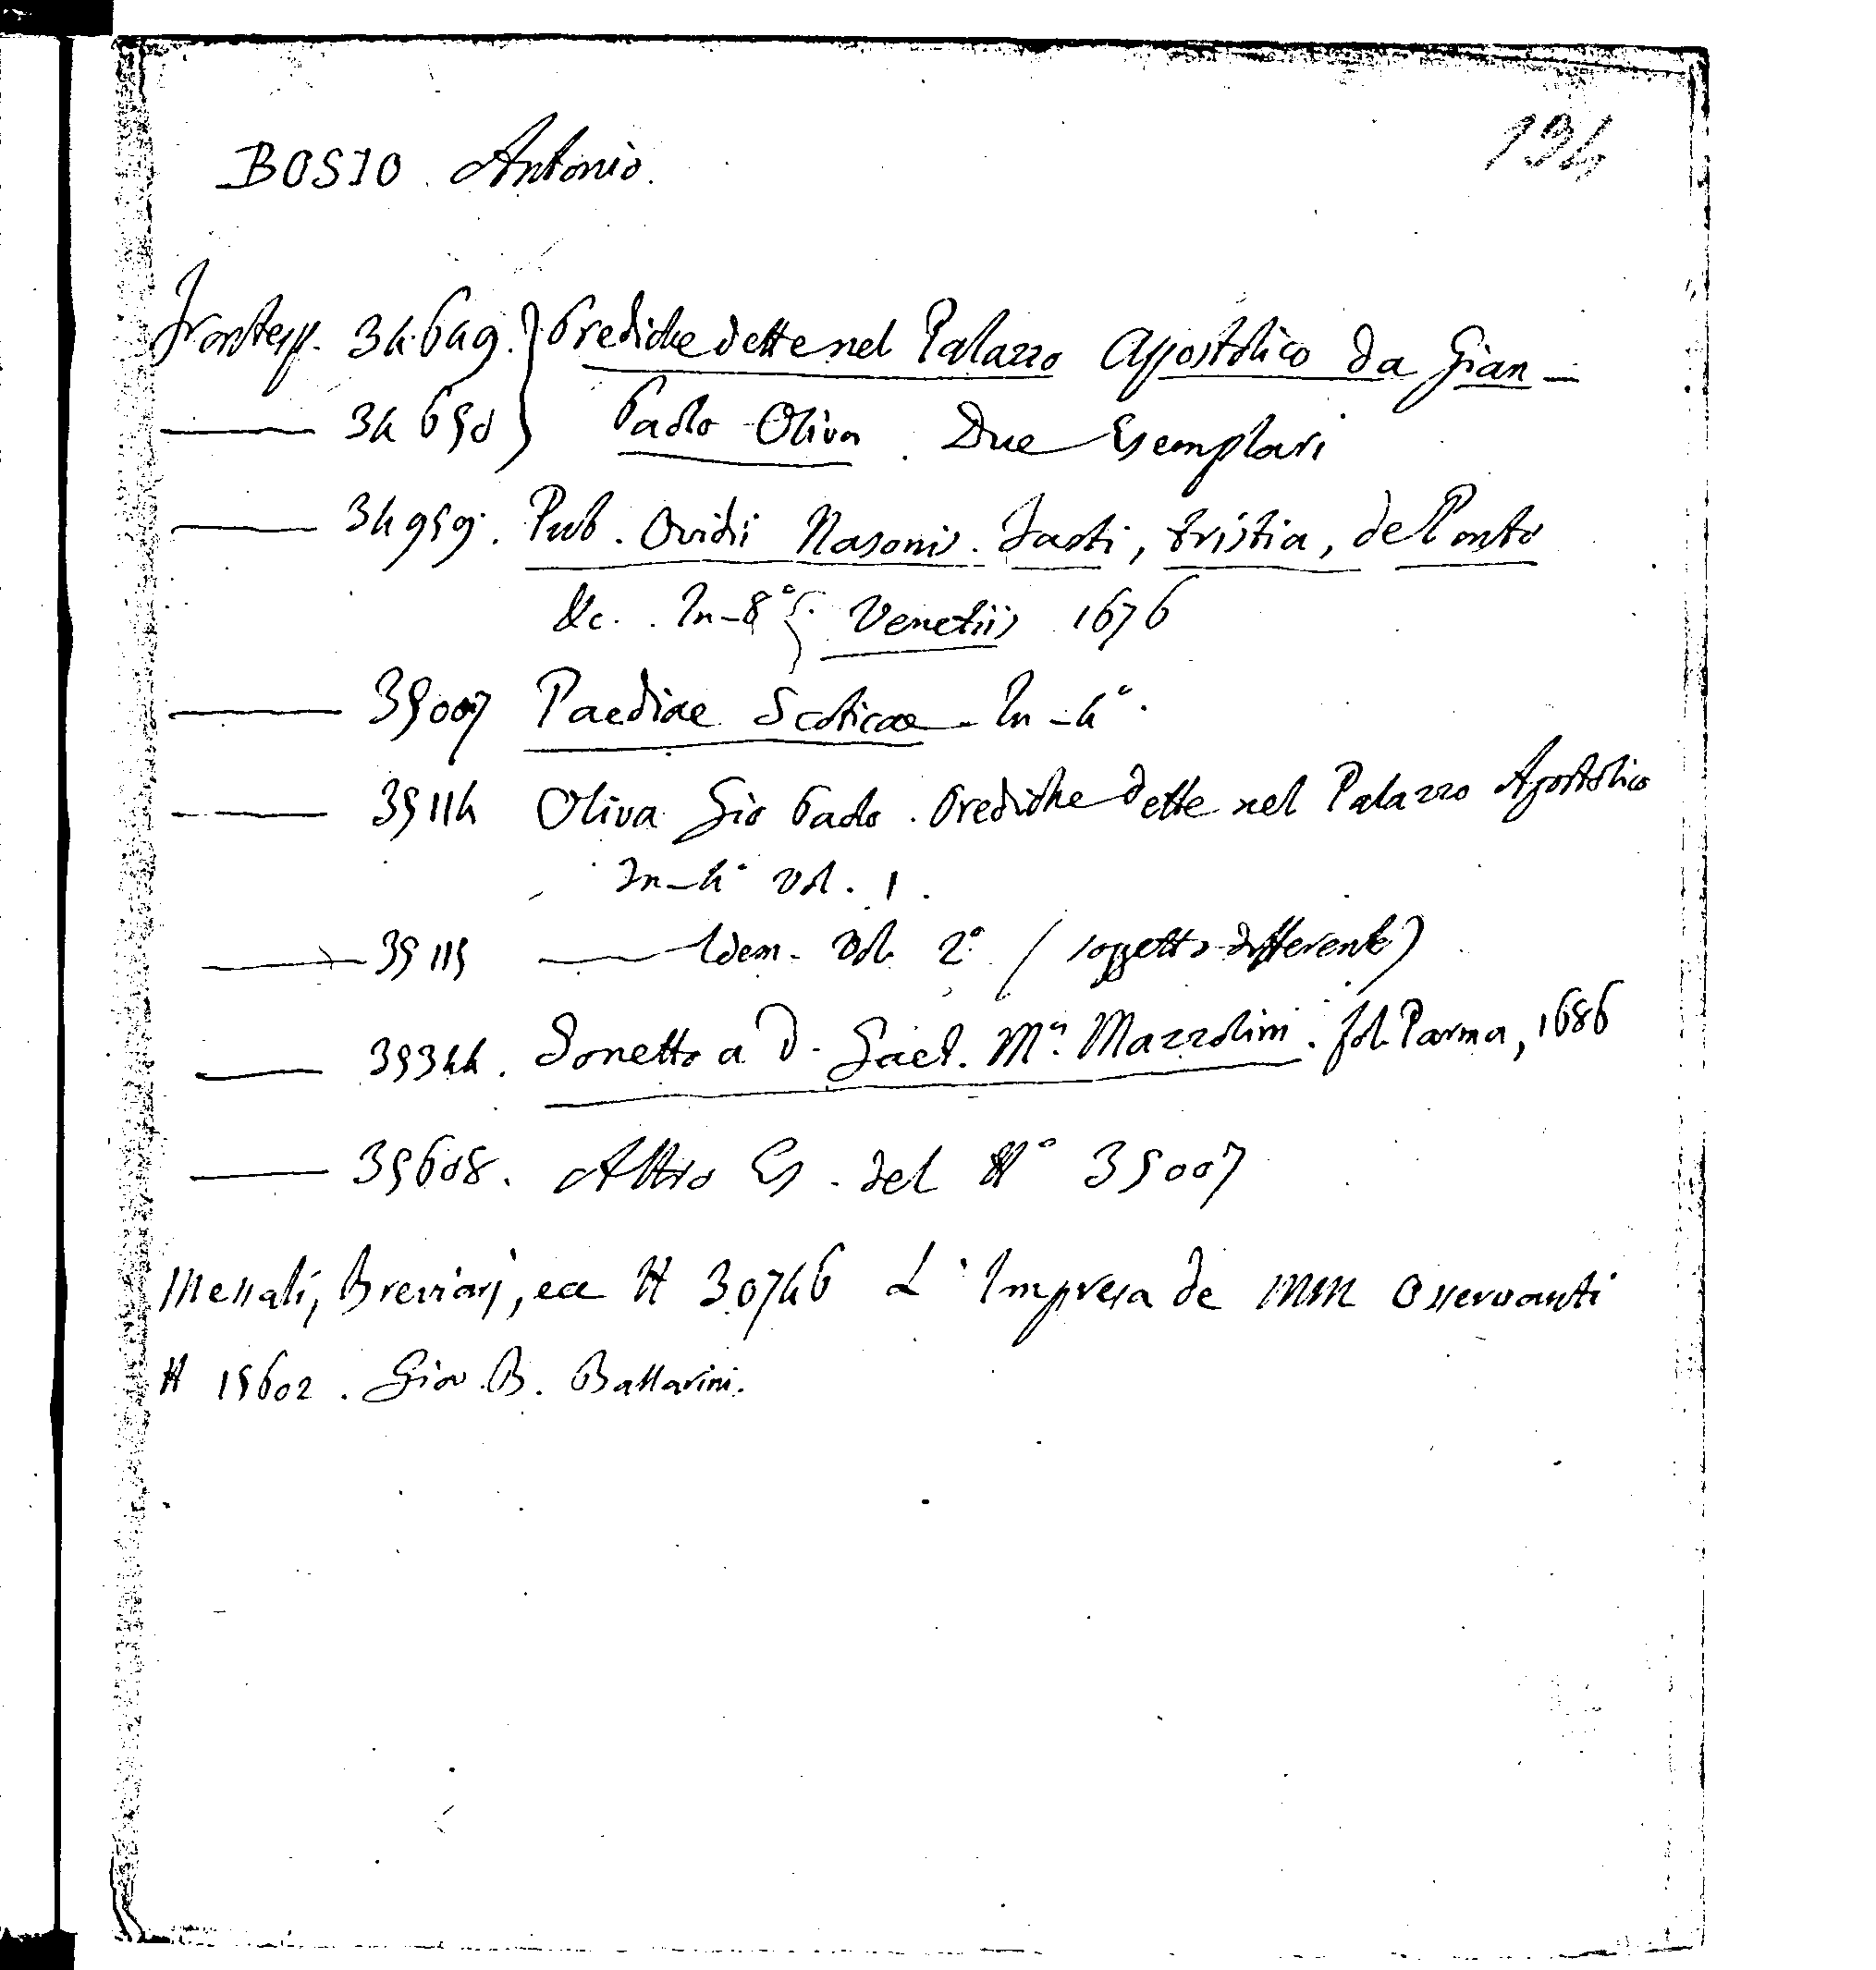 BOSIO. Antonio.
134
Frontesp. 34.649. } Prediche dette nel Palazzo Appostolico da Gian-
——— 34650 } Paolo Oliva. Due Esemplari
——— 34959. Pub. Ovidii Nasonis. Fasti, tristia, de Ponto
&c. In-8° Venetiis 1676
——— 35007 Paediae Scoticae. In-4°.
——— 35114 Oliva Gio Paolo. Prediche dette nel Palazzo Apostolico
In-4° vol. 1.
——— 35115 ——— Idem. Vol. 2° (soggetto differente)
——— 35344. Sonetto a D. Gaet. Mª. Mazzolini. fol. Parma, 1686
——— 35608. Altro Es. del N° 35007
Messali, Breviarj, ec N 30746 L'Impresa de MM Osservanti
N 15602. Giov. B. Ballarini.